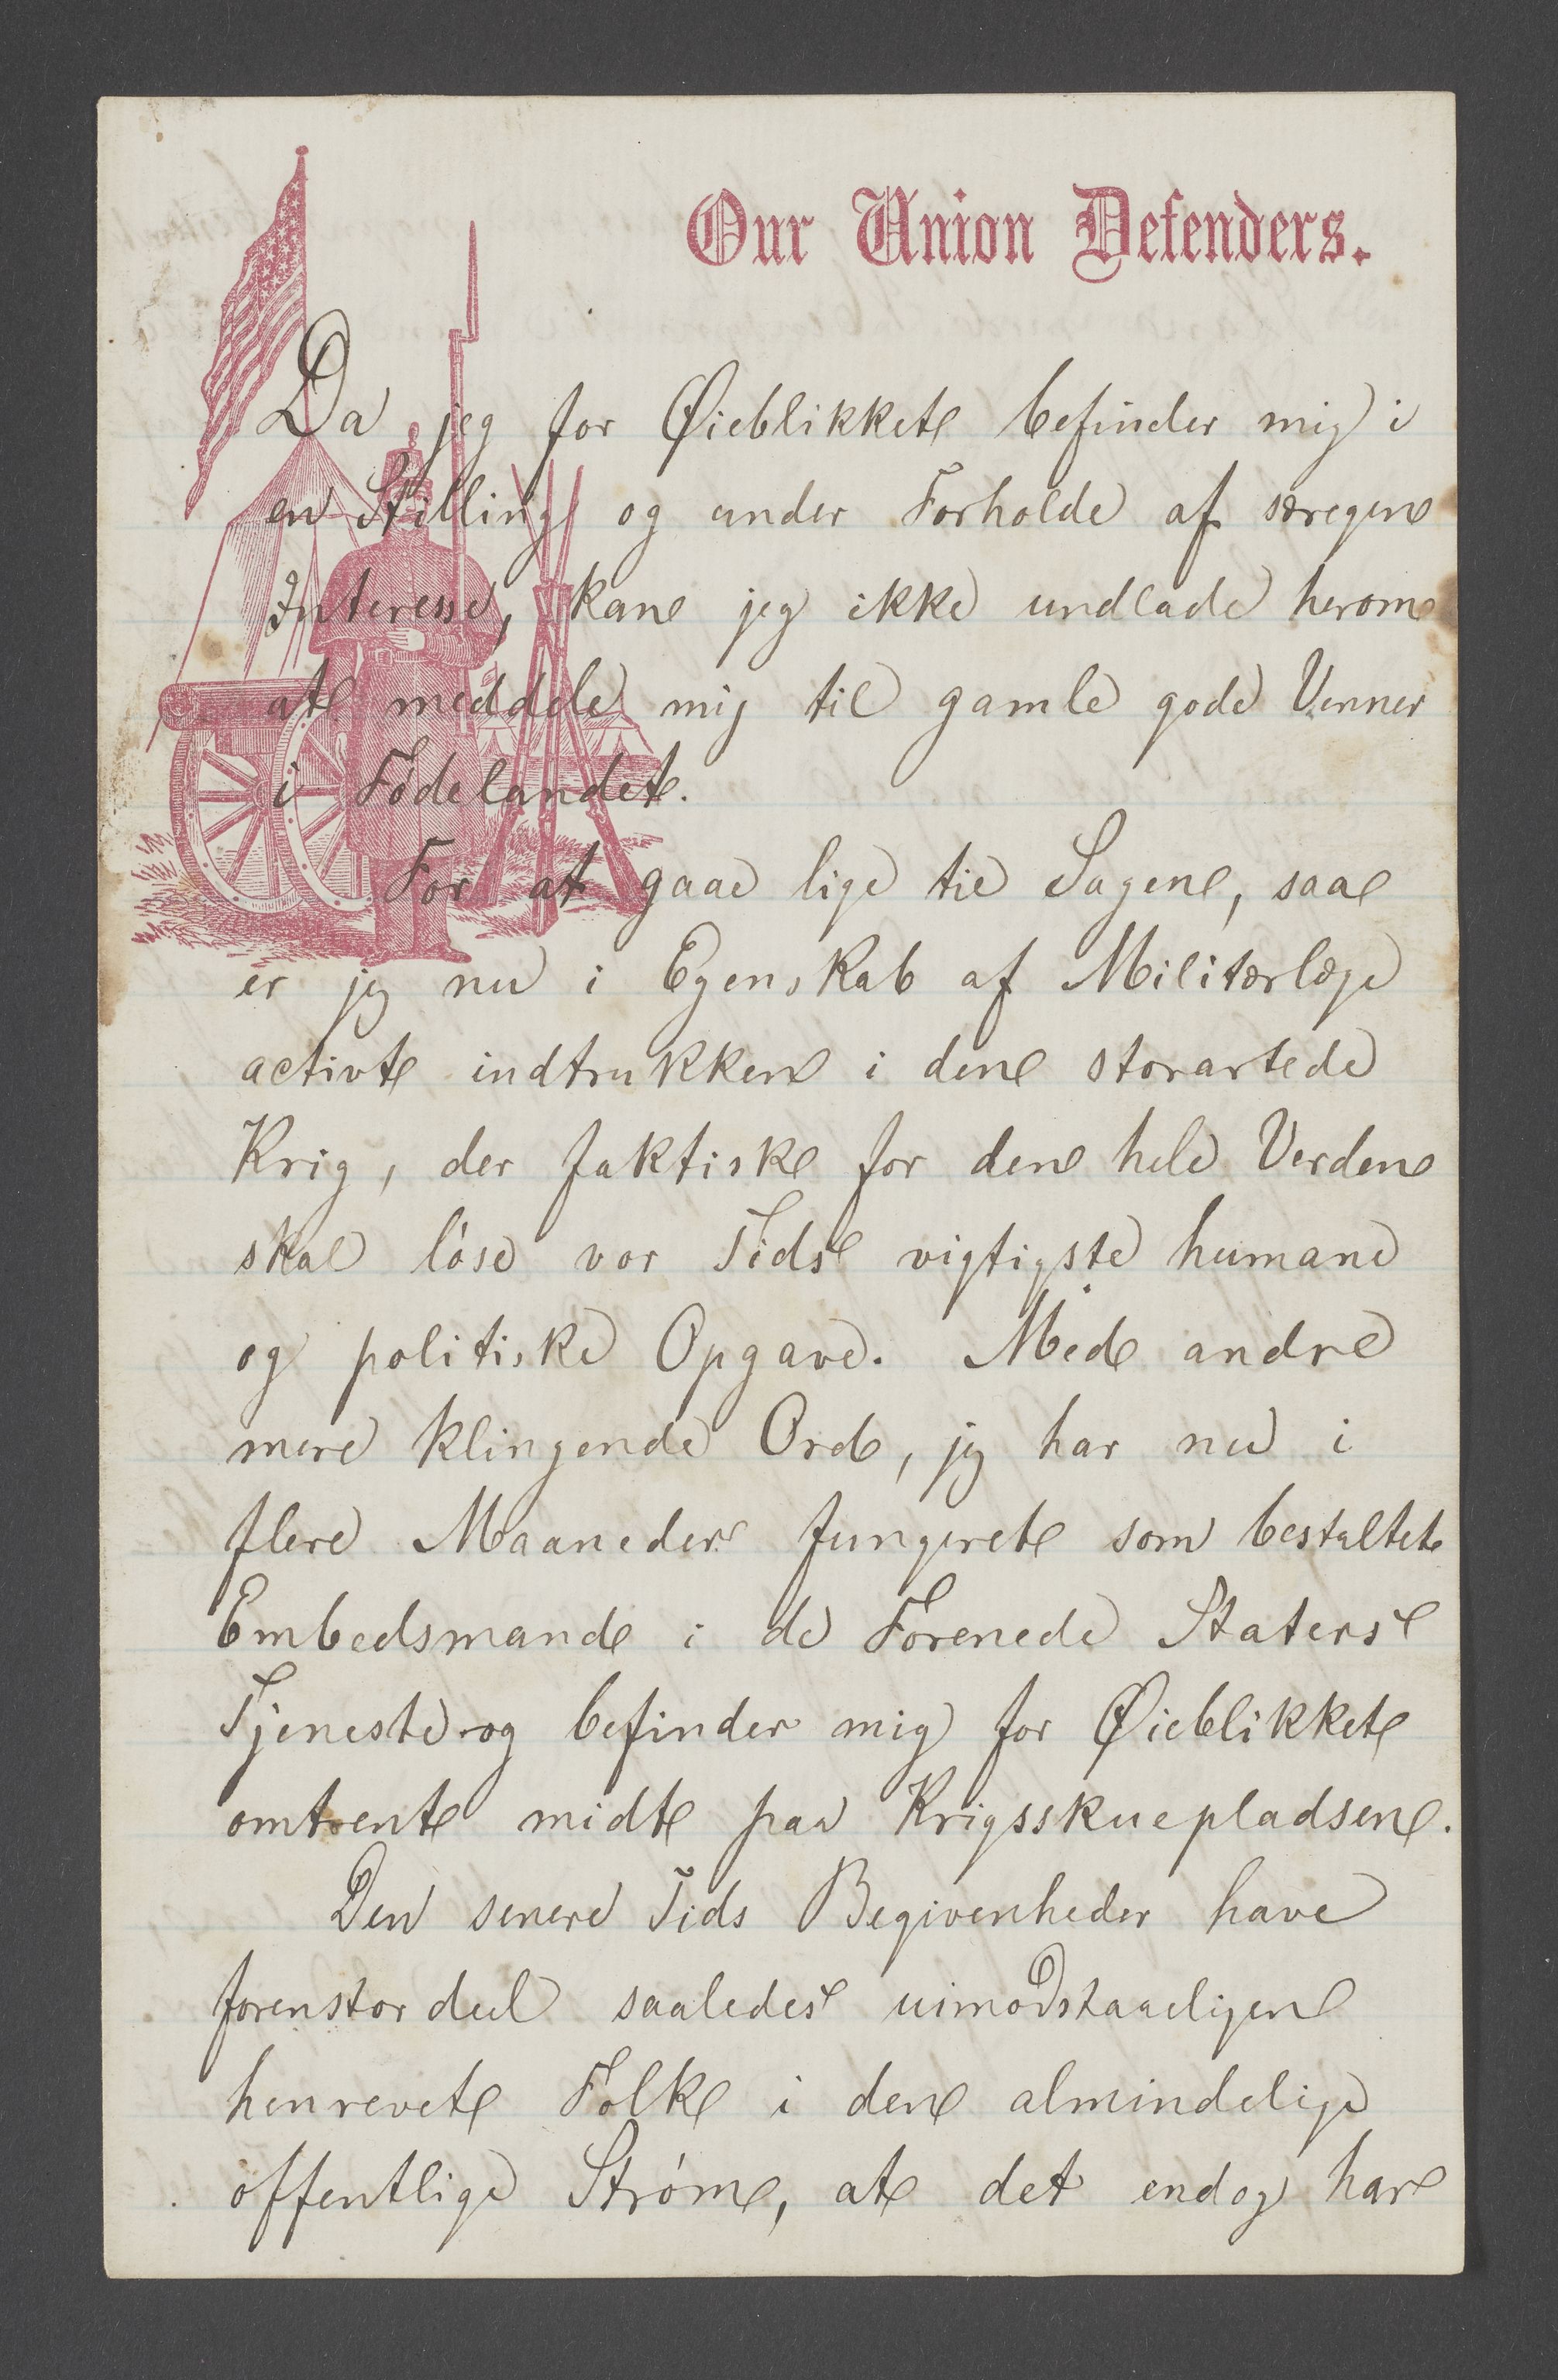 Our Union Defenders.
Da jeg for Øieblikket befinder mig i
en Stilling og under Forholde af særegen
Interesse, kan jeg ikke undlade herom
at meddele mig til gamle gode Venner
i Fødelandet.
For at gaae lige til Sagen, saa
er jeg nu i Egenskab af Militærlæge
activt indtrukken i den storartede
Krig, der faktisk for den hele Verden
skal löse vor Tids vigtigste humane
og politiske Opgave. Med andre
mere klingende Ord, jeg har nu i
flere Maaneder fungeret som bestaltet
Embedsmand i de Forenede Staters
Tjeneste og befinder mig for Øieblikket
omtrent midt paa Krigsskuepladsen.
Den senere Tids Begivenheder have
forenstordeel saaledes uimodstaaeligen
henrevet Folk i den almindelige
offentlige Strøm, at det endog har